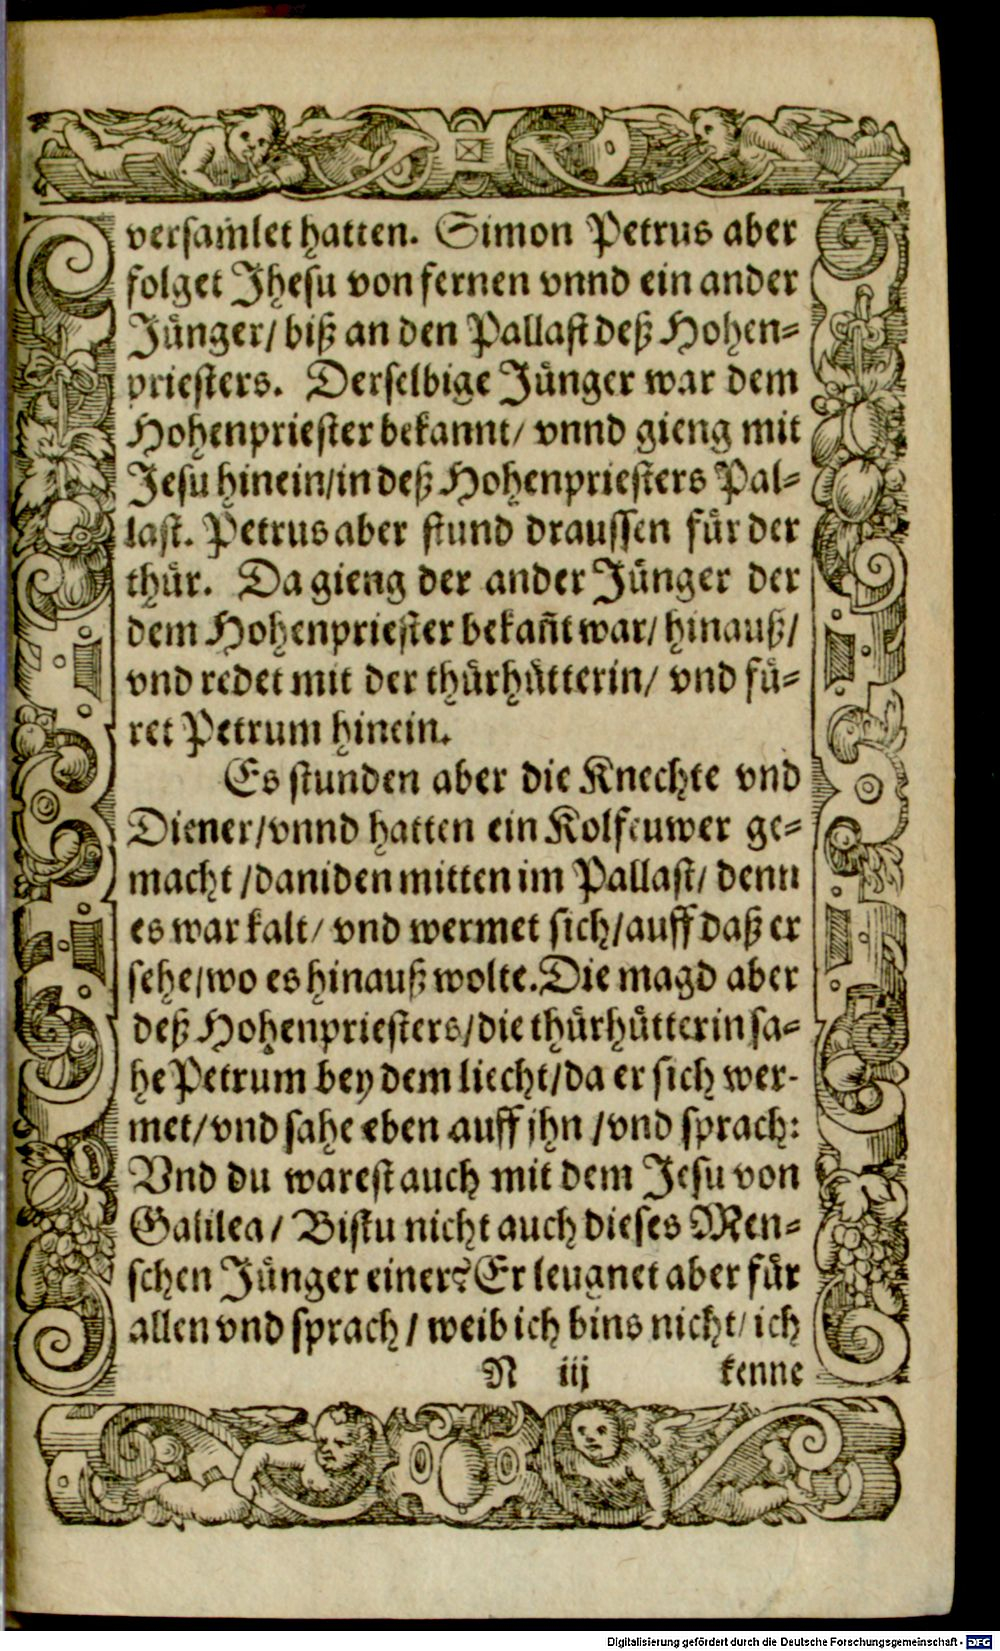 versam̃let hatten. Simon Petrus aber
folget Jhesu von fernen vnnd ein ander
Jünger/ biß an den Pallast deß Hohen=
priesters. Derselbige Jünger war dem
Hohenpriester bekannt/ vnnd gieng mit
Jesu hinein/in deß Hohenpriesters Pal=
last. Petrus aber stund draussen für der
thür. Da gieng der ander Jünger der
dem Hohenpriester bekañt war/ hinauß/
vnd redet mit der thürhütterin/ vnd fü=
ret Petrum hinein.
Es stunden aber die Knechte vnd
Diener/vnnd hatten ein Kolfeuwer ge=
macht /daniden mitten im Pallast/ denn
es war kalt/ vnd wermet sich/auff daß er
sehe/wo es hinauß wolte.Die magd aber
deß Hohenpriesters/die thürhütterin sa=
he Petrum bey dem liecht/da er sich wer-
met/vnd sahe eben auff jhn /vnd sprach:
Vnd du warest auch mit dem Jesu von
Galilea/ Bistu nicht auch dieses Men=
schen Jünger einer? Er leugnet aber für
allen vnd sprach/ weib ich bins nicht/ ich
N iij kenne
Digitalisierung gefördert durch die Deutsche Forschungsgemeinschaft - DFG